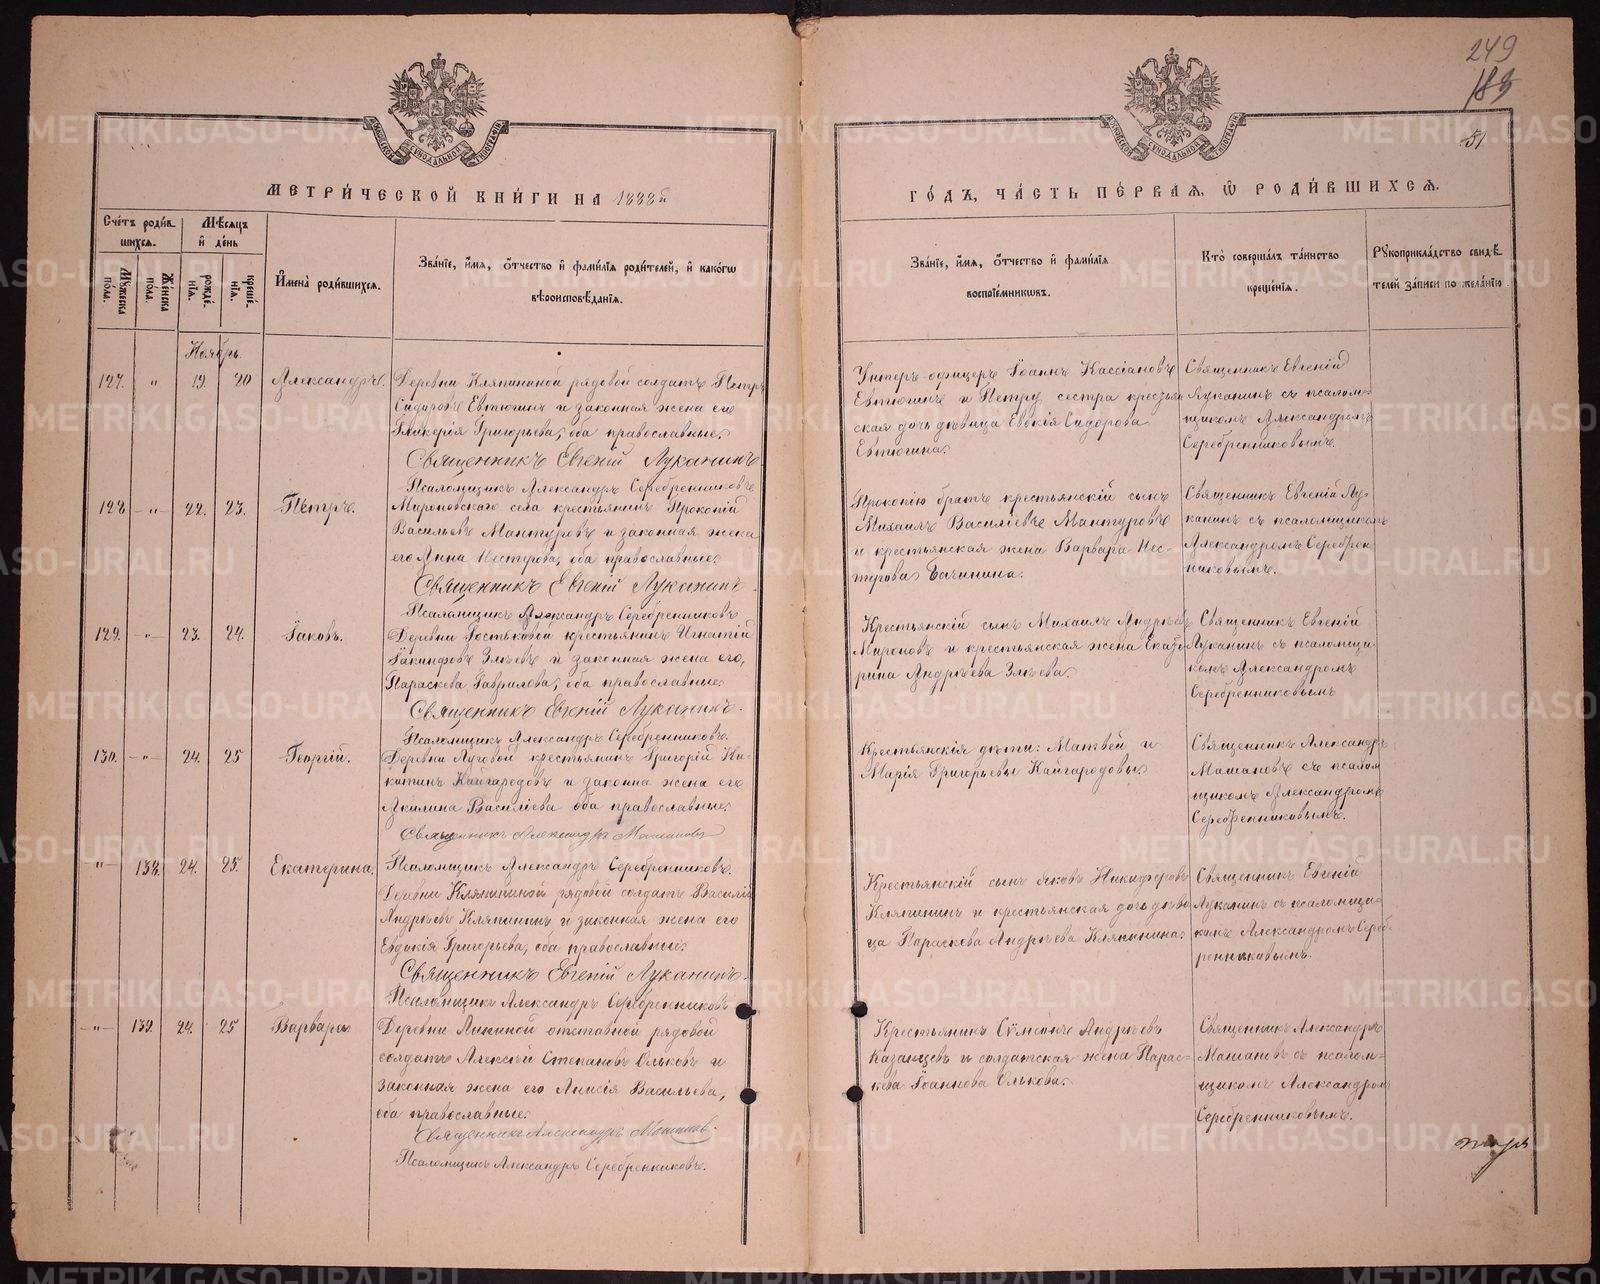 249
183
51
МЕТРИЧЕСКОЙ КНИГИ НА 1888й
ГОДЪ, ЧАСТЬ ПЕРВАЯ, Ѡ РОДИВШИХСЯ.
Счетъ родившихся.
Мужеска пола.
Женска пола.
Мѣсяцъ и день
рожденія.
крещенія.
Имена родившихся.
Званіе, имя, отчество и фамилія родителей, и какогѡ вѣроисповѣданія.
Званіе, имя, отчество и фамилія воспріемниковъ.
Кто совершалъ таинство крещенія.
Рукоприкладство свидѣтелей записи по желанію.
Ноябрь
127. " 19. 20 Александръ.
Деревни Кляпининой рядовой солдатъ Петръ
Сидоровъ Евтюгинъ и законная жена его
Гликерія Григорьева, оба православные.
Священникъ Евгеній Луканинъ
Псаломщикъ Александръ Серебренниковъ
Унтеръ-офицеръ Іоаннъ Кассіановъ
Евтюгинъ и Петру сестра крестьян
ская дочь дѣвица Евдокія Сидорова
Евтюгина.
Священникъ Евгеній
Луканинъ съ псалом-
щикомъ Александромъ
Серебренниковымъ.
128 -"- 22. 23. Петръ.
Мироновскаго села крестьянинъ Прокопій
Васильевъ Мантуровъ и законная жена
его Анна Нестерова, оба православные.
Священникъ Евгеній Луканинъ
Псаломщикъ Александръ Серебренниковъ
Прокопію братъ крестьянскій сынъ
Михаилъ Василіевъ Мантуровъ
и крестьянская жена Варвара Нес-
терова
Священникъ Евгеній Лу-
канинъ съ псаломщикомъ
Александромъ Серебрен
никовымъ.
129. -"- 23. 24. Іаковъ.
Деревни Гостьковой крестьянинъ Игнатій
Іакинфовъ Змѣевъ и законная жена его,
Параскева Гаврилова, оба православные.
Священникъ Евгеній Луканинъ.
Псаломщикъ Александръ Серебренниковъ.
Крестьянскій сынъ Михаилъ Андрѣевъ
Мироновъ и крестьянская жена Екате
рина Андрѣева Змѣева.
Священникъ Евгеній
Луканинъ съ псаломщи
комъ Александромъ
Серебренниковымъ
130. -"- 24. 25 Георгій.
Деревни Луговой крестьянинъ Григорій Ни-
китинъ Кайгородовъ и законна жена его
Акилина Василіева оба православные.
Священникъ Александръ Машановъ
Псаломщикъ Александръ Серебренниковъ.
Крестьянскія дѣти: Матвей и
Марія Григорьевы Кайгородовы
Священникъ Александръ
Машановъ съ псалом
щикомъ Александромъ
Серебренниковымъ.
-"- 24. 25. Екатерина.
Деревни Кляпининой рядовой солдатъ Василій
Андрѣевъ Кляпининъ и законная жена его
Евдокія Григорьева, оба православные.
Священникъ Евгеній Луканинъ.
Псаломщикъ Александръ Серебренниковъ
Крестьянскій сынъ Никифоровъ
Кляпининъ и крестьянская дочь дѣви
ца Параскева Андрѣева Кляпинина.
Священникъ Евгеній
Луканинъ съ псаломщи-
комъ Александромъ Сереб-
ренниковымъ.
-"- 132. 24. 25 Варвара
Деревни Липиной отставной рядовой
солдатъ Алексѣй Степановъ Ольковъ и
законная жена его Анисія Васильева,
оба православные.
Священникъ Александръ Машановъ.
Псаломщикъ Александръ Серебренниковъ.
Крестьянинъ Сѵмеонъ Андрѣевъ
Казанцевъ и солдатская жена Парас-
кева Іоаннова Олькова.
Священникъ Александръ
Машановъ съ псалом-
щикомъ Александромъ
Серебренниковымъ.
METRIKI.GASO-URAL.RU